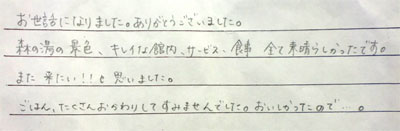 お世話になりました。ありがとうございました。
森の湯の景色、キレイな館内、サービス、食事 全て素晴らしかったです。
また来たい!!と思いました。
ごはん、たくさんおかわりしてすみませんでした。おいしかったので…。